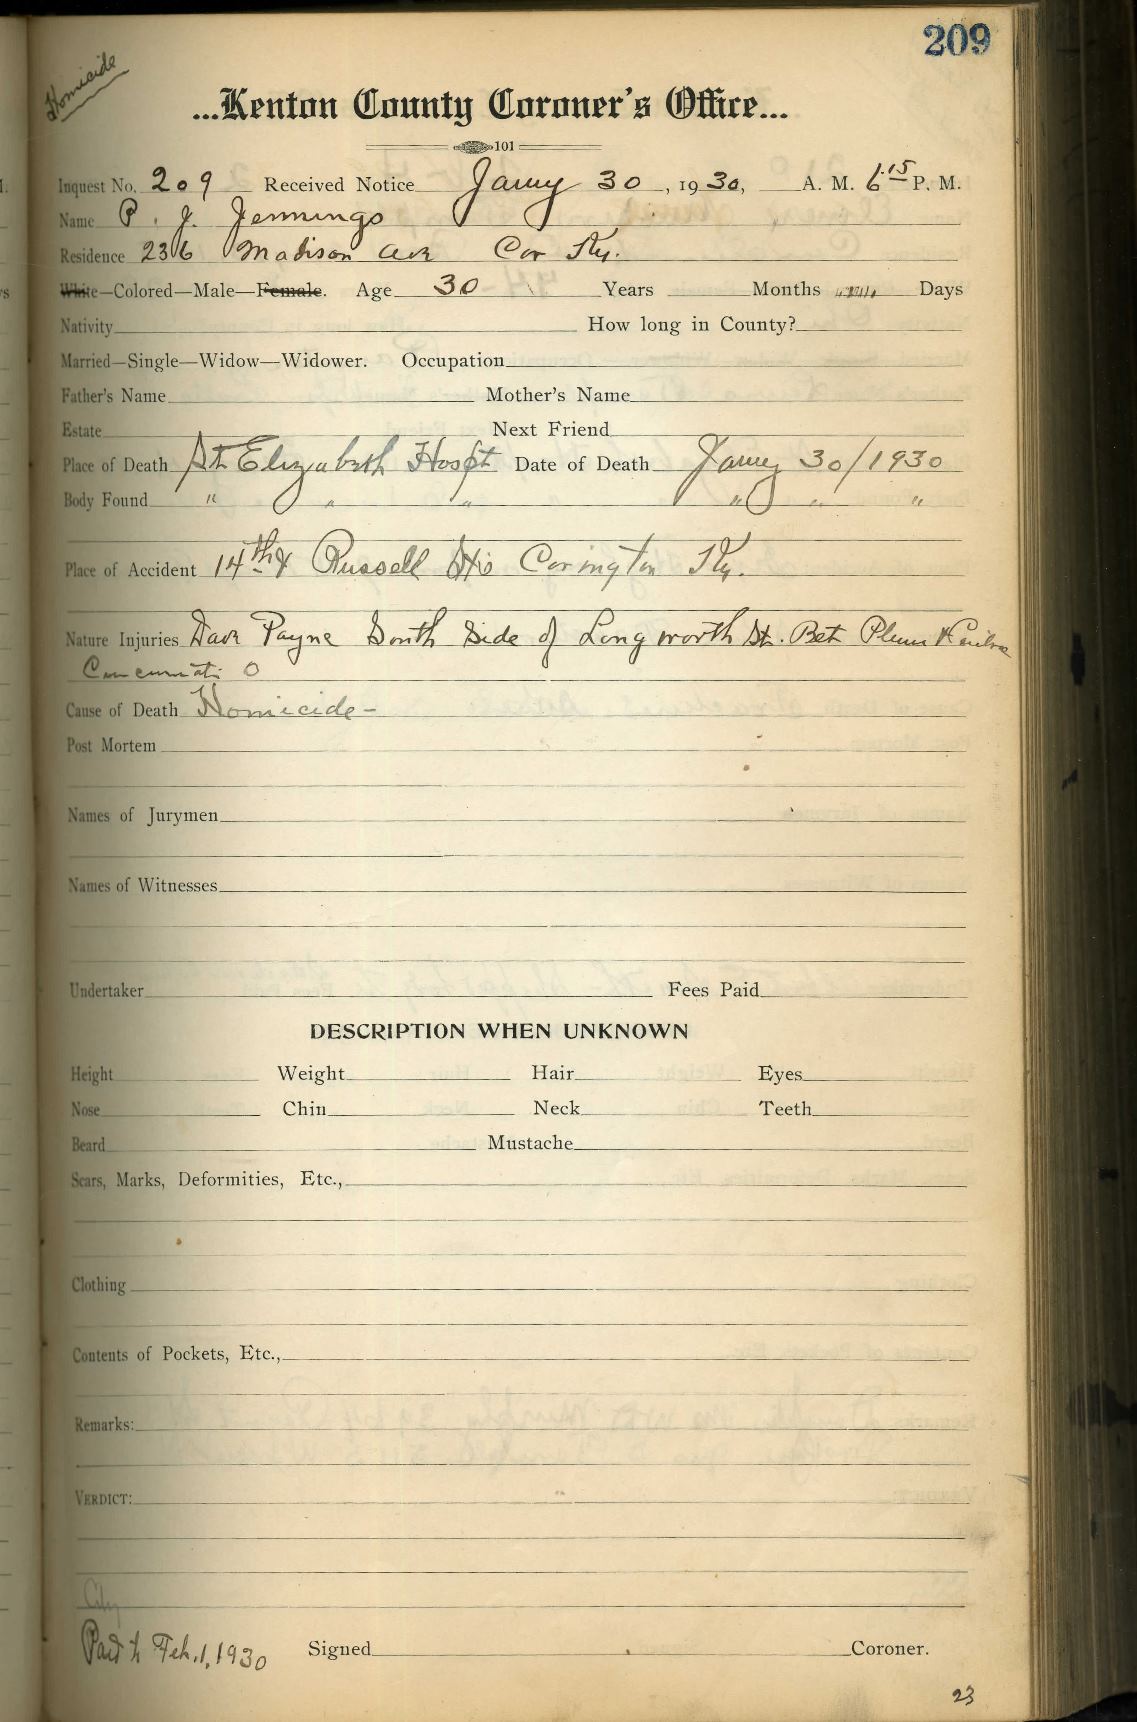 209
Homicide
...Kenton County Coroner's Office...
101
Inquest No. 209 Received Notice Jany 30, 1930, A. M. 6 15 P. M.
Name P. J. Jennings
Residence 236 Madison Ave Cov Ky.
White—Colored—Male—Female. Age 30 Years Months Days
Nativity How long in County?
Married—Single—Widow—Widower. Occupation
Father's Name Mother's Name
Estate Next Friend
Place of Death St Elizabeth Hospt Date of Death Jany 30/1930
Body Found " " " " " "
Place of Accident 14th & Russell Sts Covington Ky.
Nature Injuries Dave Payne South Side of Longworth St. Bet Plum &
Cincinnati O
Cause of Death Homicide-
Post Mortem
Names of Jurymen
Names of Witnesses
Undertaker Fees Paid
DESCRIPTION WHEN UNKNOWN
Height Weight Hair Eyes
Nose Chin Neck Teeth
Beard Mustache
Scars, Marks, Deformities, Etc.,
Clothing
Contents of Pockets, Etc.,
Remarks:
VERDICT:
City
Paid Feb. 1, 1930 Signed Coroner.
23